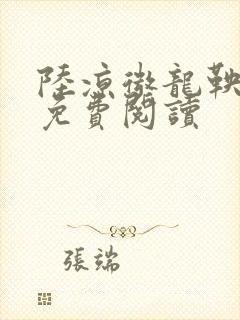 陸涼徹龍鞅
免費閱讀
張端